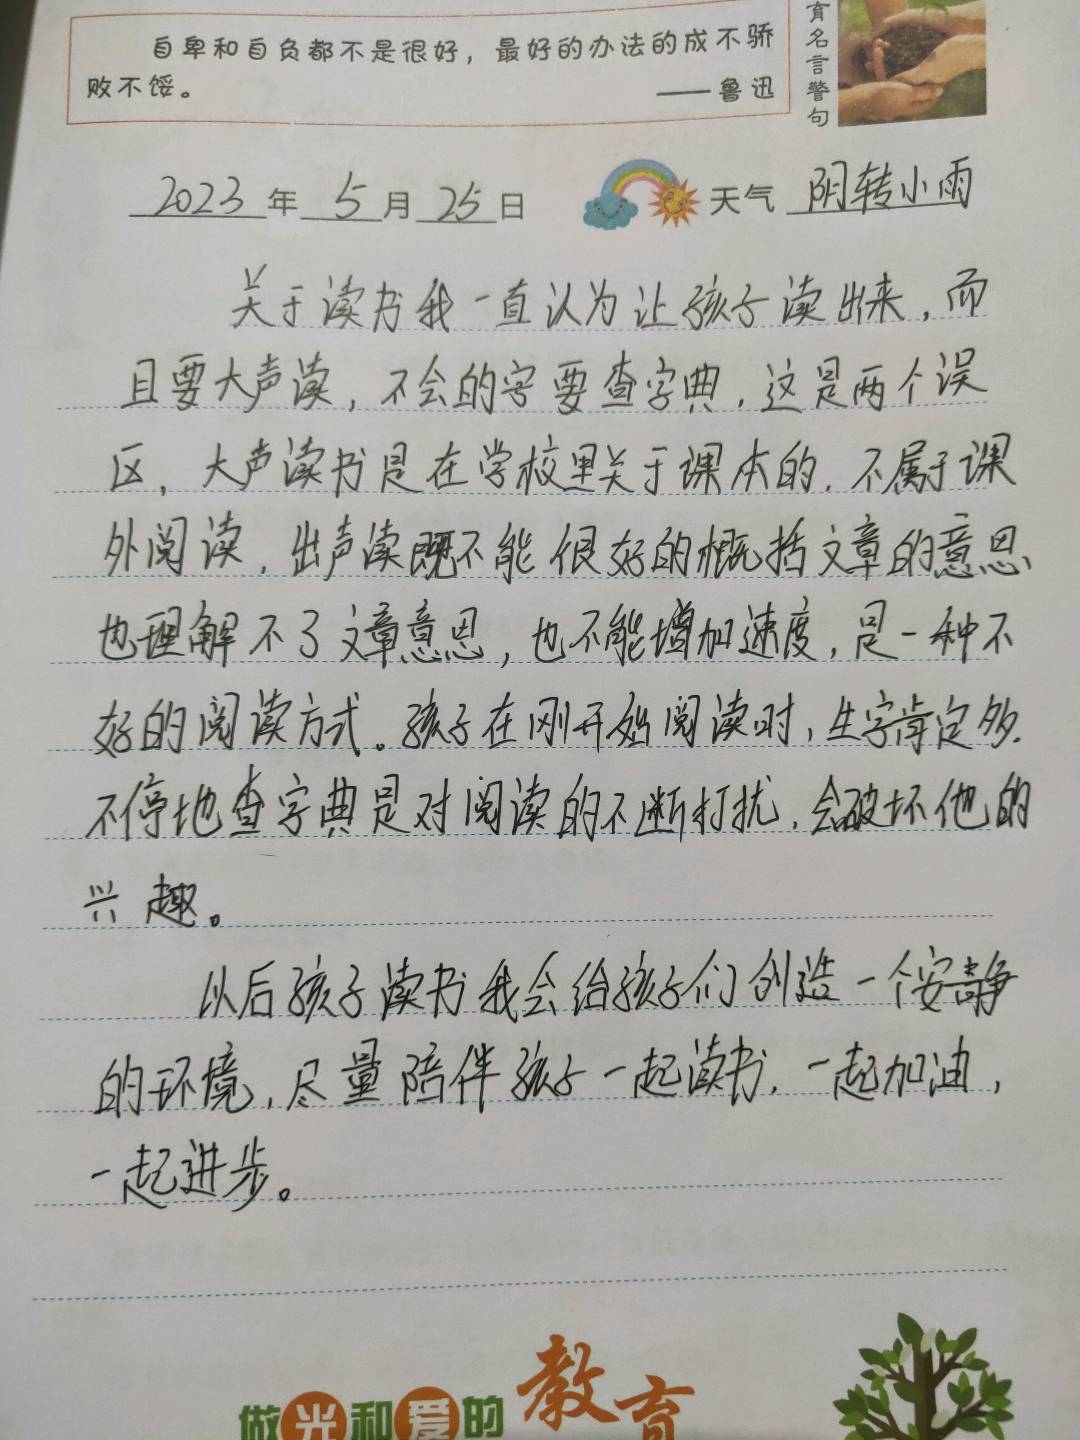 自卑和自负都不是很好，最好的办法的成不骄
败不馁。
——鲁迅
育名言警句
2023年5月25日 天气 阴转小雨
关于读书我一直认为让孩子读出来，而
且要大声读，不会的字要查字典，这是两个误
区，大声读书是在学校里关于课本的，不属于课
外阅读，出声读既不能很好的概括文章的意思、
也理解不了文章意思，也不能增加速度，是一种不
好的阅读方式。孩子在刚开始阅读时，生字肯定多，
不停地查字典是对阅读的不断打扰，会破坏他的
兴趣。
以后孩子读书我会给孩子们创造一个安静
的环境，尽量陪伴孩子一起读书，一起加油，
一起进步。
做光和爱的教育